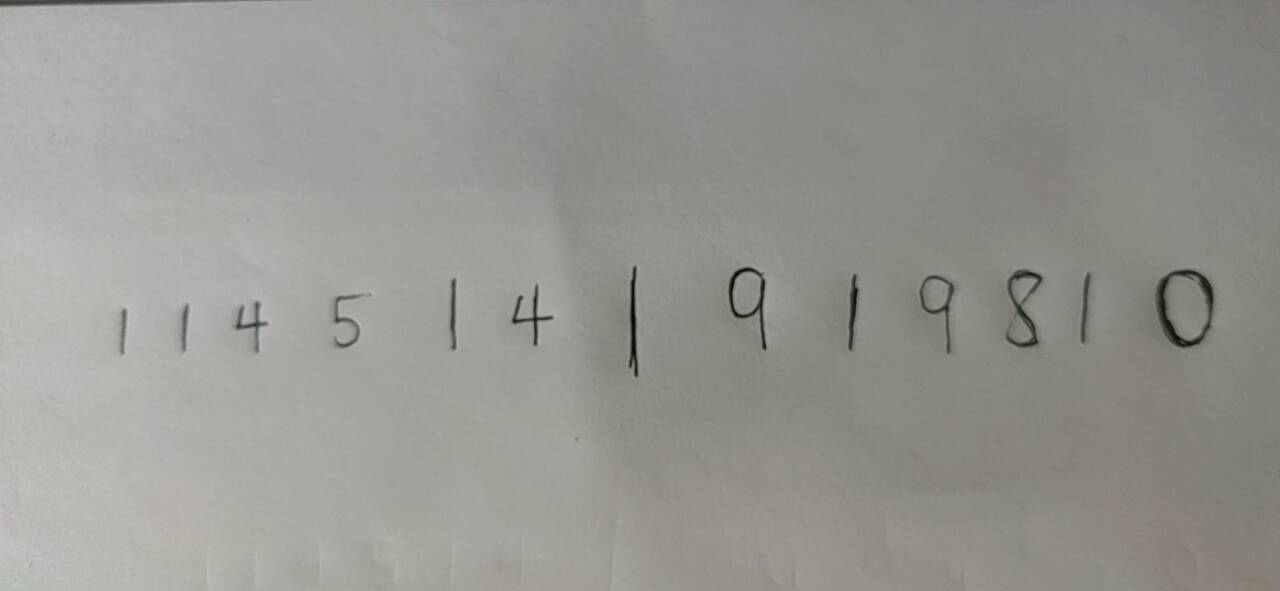 1 1 4 5 1 4 1 9 1 9 8 1 0